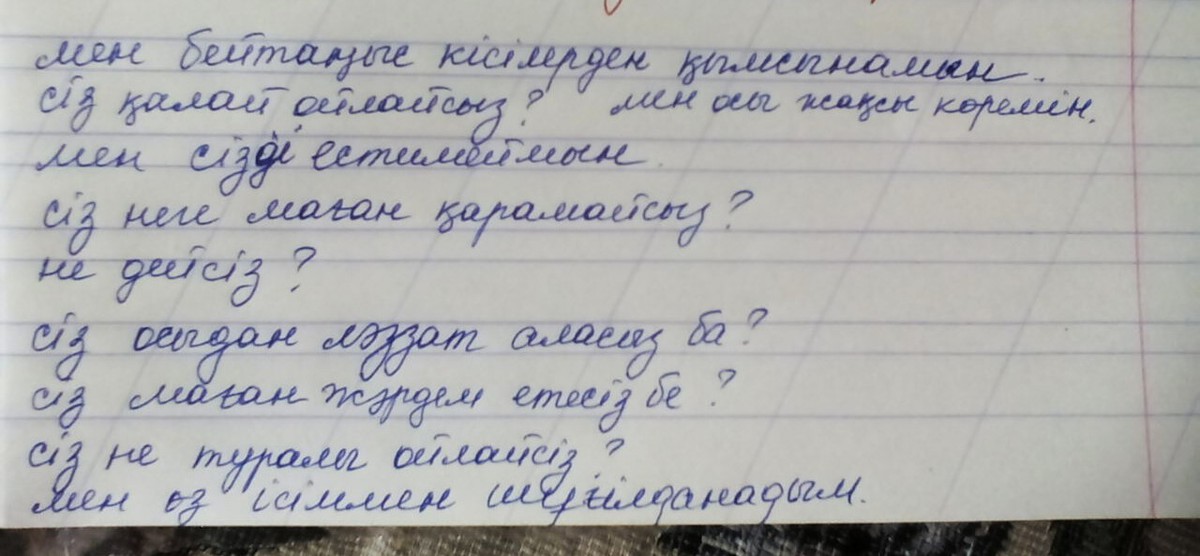 мен бейтаңыс кісілерден қымсынамын.
сіз қалай ойлайсыз? мен осы жақсы көремін.
мен сізді естимеймын
сіз неге маған қарамайсыз?
не дейсіз?
сіз осыдан ләззат аласыз ба?
сіз маған жәрдем етесіз бе?
сіз не туралы ойлайсіз?
мен өз ісіммен шұғілданадым.